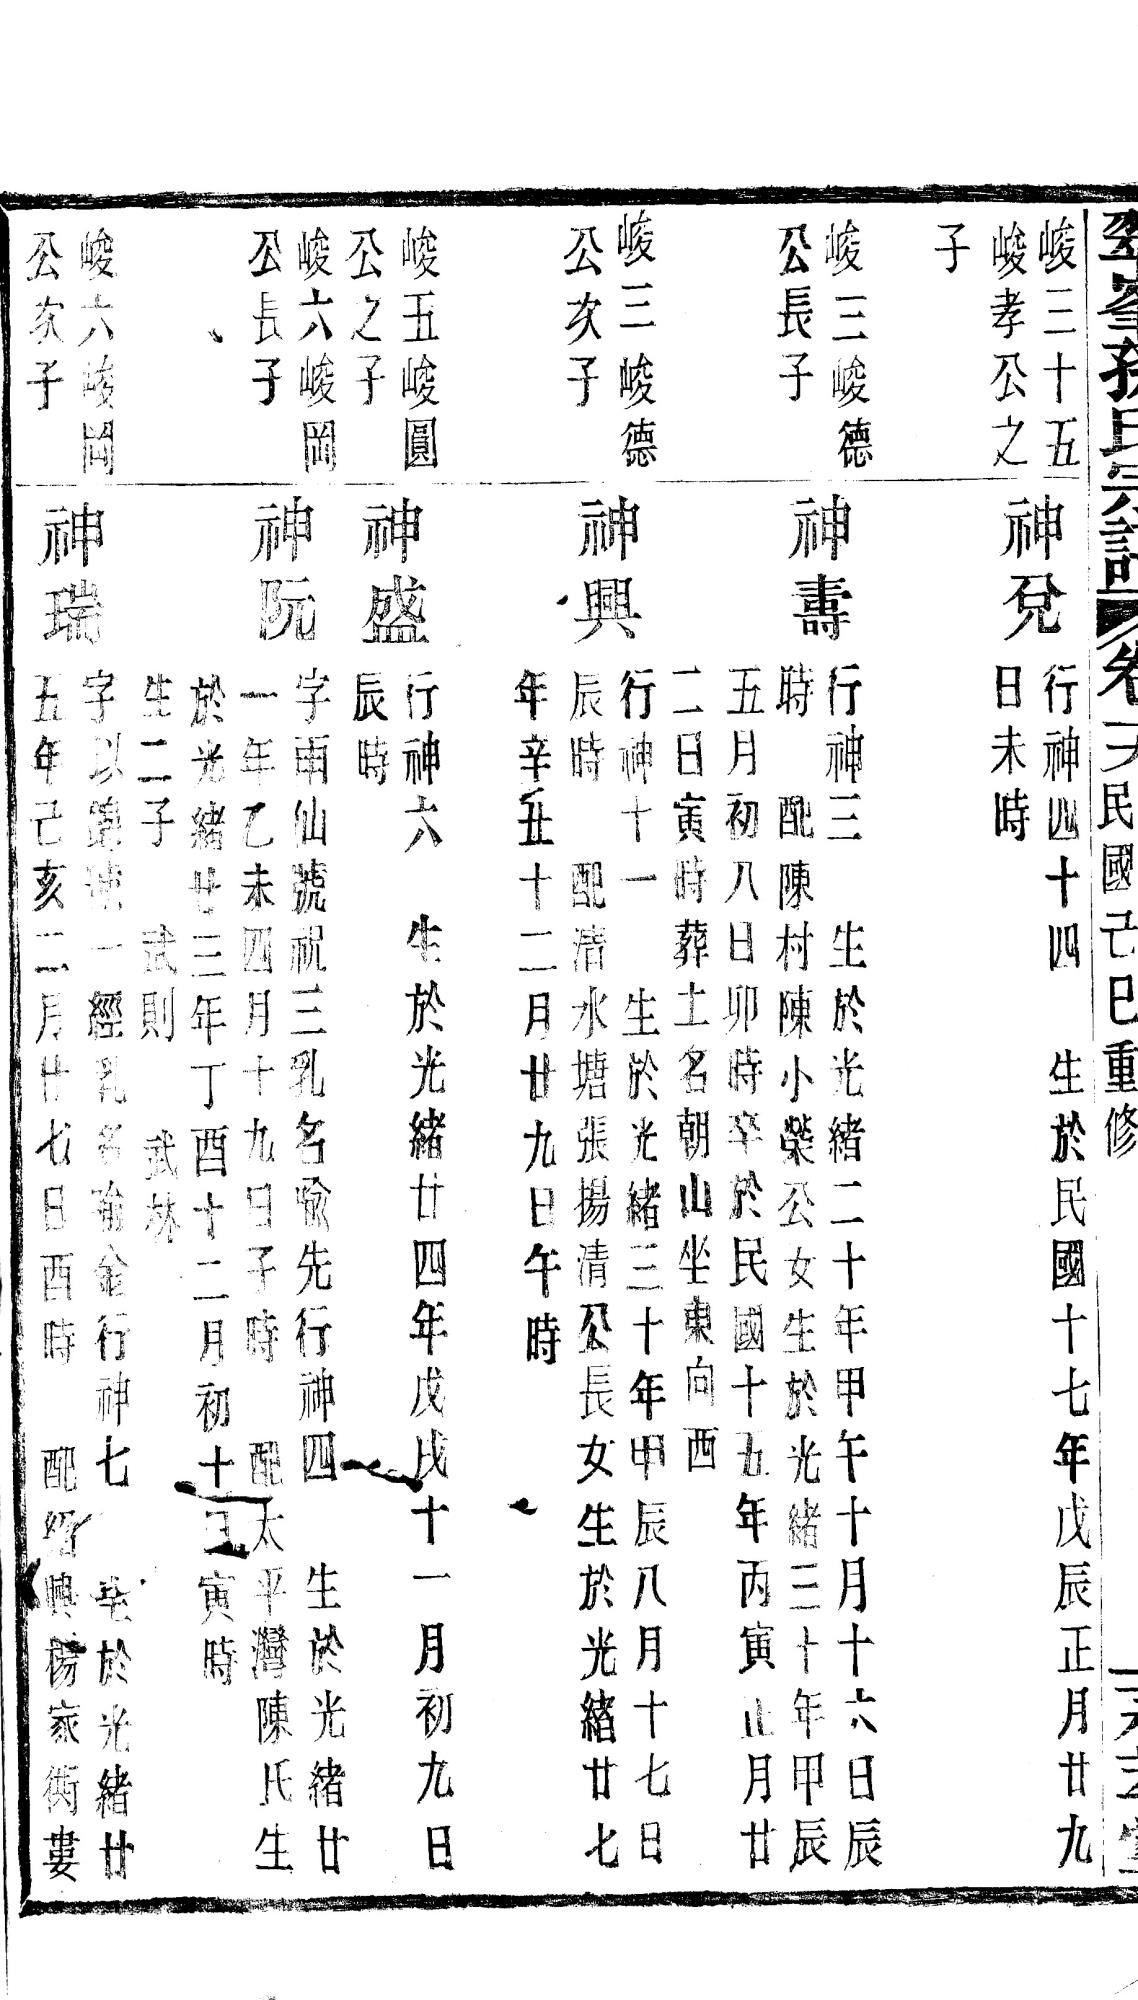 峯孫氏宗譜 卷 民國己巳重修
峻三十五
峻孝公之
子
神兌
行神四十四　生於民國十七年戊辰正月廿九
日未時
峻三峻德
公長子
神壽
行神三　生於光緒二十年甲午十月十六日辰
時　配陳村陳小榮公女生於光緒三十年甲辰
五月初八日卯時卒於民國十五年丙寅正月廿
二日寅時葬土名朝山坐東向西
峻三峻德
公次子
神興
行神十一　生於光緒三十年甲辰八月十七日
辰時　配清水塘張揚清公長女生於光緒廿七
年辛丑十二月廿九日午時
峻五峻圓
公之子
神盛
行神六　生於光緒廿四年戊戌十一月初九日
辰時
峻六峻岡
公長子
神阮
字雨仙號祝三乳名喩先行神四　生於光緒廿
一年乙未四月十九日子時　配太平灣陳氏生
於光緒廿三年丁酉十二月初十日寅時
生二子　武則　武林
峻六峻岡
公次子
神瑞
字以 號一經乳名瑜金行神七　生於光緒廿
五年己亥二月廿七日酉時　配紹興楊家衖婁